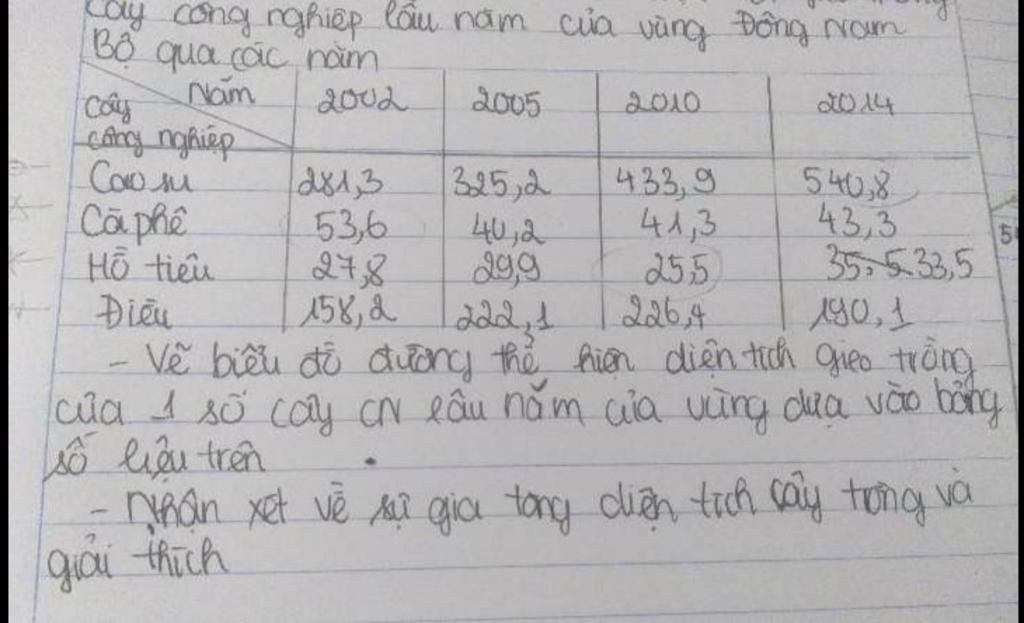 cây công nghiệp lâu năm của vùng Đông Nam
Bộ qua các năm
Năm 2002 2005 2010 2014
Cây
công nghiệp
Cao su 281,3 325,2 433,9 540,8
Cà phê 53,6 40,2 41,3 43,3
Hồ tiêu 27,8 29,9 25,5 35,5 33,5
Điều 158,2 222,1 226,4 190,1
- Vẽ biểu đồ đường thể hiện diện tích gieo trồng
của 1 số cây CN lâu năm của vùng dựa vào bảng
số liệu trên
- Nhận xét về sự gia tăng diện tích cây trồng và
giải thích